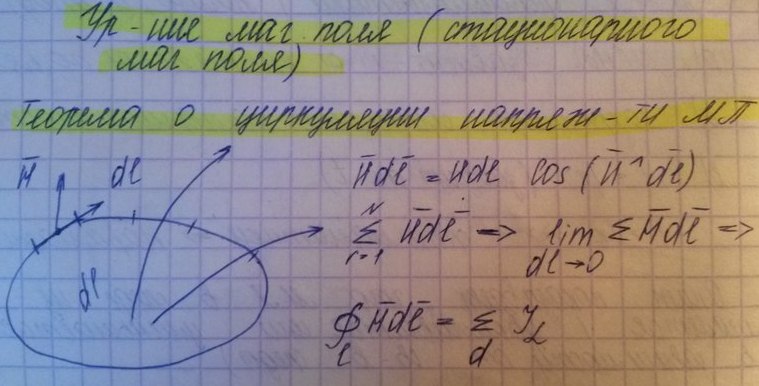 Ур-ние маг. поля (стационарного
маг поля)
Теорема о циркуляции напряж-ти МП
H̄ dl
H̄dl̄ = Hdl cos (H̄ ^ dl̄)
N
Σ H̄dl̄ => lim Σ H̄dl̄ =>
i=1 dl→0
dl
∮ H̄dl̄ = Σ I
l